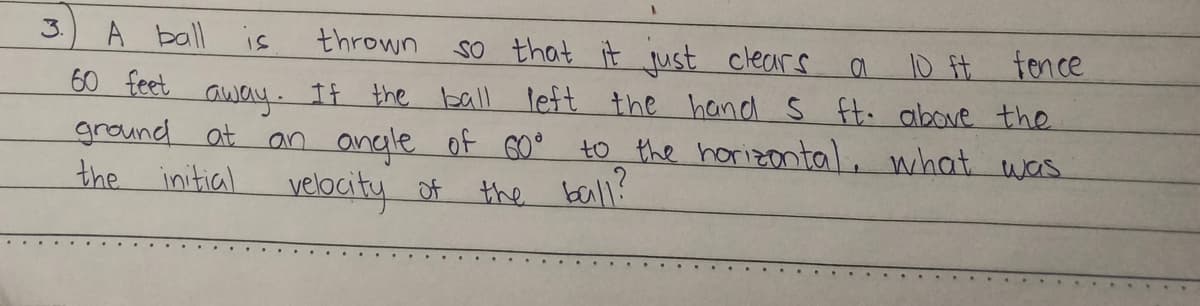 3. A ball is thrown so that it just clears a 10 ft fence
60 feet away. If the ball left the hand 5 ft. above the
ground at an angle of 60° to the horizontal, what was
the initial velocity of the ball?